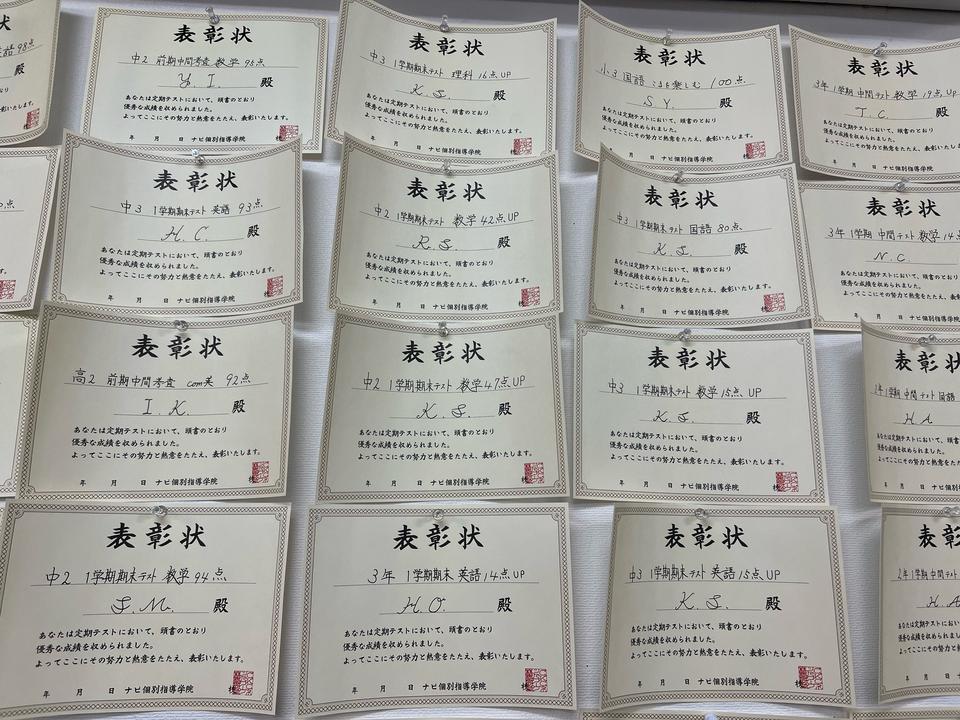 98点
表彰状
中2 前期中間考査 数学 95点
Y. I. 殿
あなたは定期テストにおいて、頭書のとおり
優秀な成績を収められました。
よってここにその努力と熱意をたたえ、表彰いたします。
年 月 日 ナビ個別指導学院
表彰状
中3 1学期期末テスト 理科 16点UP
K. S. 殿
あなたは定期テストにおいて、頭書のとおり
優秀な成績を収められました。
よってここにその努力と熱意をたたえ、表彰いたします。
表彰状
小3 国語 こまを楽しむ 100点
S. Y. 殿
あなたは定期テストにおいて、頭書のとおり
優秀な成績を収められました。
よってここにその努力と熱意をたたえ、表彰いたします。
年 月 日 ナビ個別指導学院
表彰状
3年 1学期 中間テスト 数学 19点UP
T. C. 殿
あなたは定期テストにおいて、頭書のとおり
優秀な成績を収められました。
よってここにその努力と熱意をたたえ、表彰いたし
年 月 日 ナビ個別指導学院
表彰状
中3 1学期期末テスト 英語 93点
H. C. 殿
あなたは定期テストにおいて、頭書のとおり
優秀な成績を収められました。
よってここにその努力と熱意をたたえ、表彰いたします。
年 月 日 ナビ個別指導学院
表彰状
中2 1学期期末テスト 数学 42点UP
R. S. 殿
あなたは定期テストにおいて、頭書のとおり
優秀な成績を収められました。
よってここにその努力と熱意をたたえ、表彰いたします。
年 月 日 ナビ個別指導学院
表彰状
中3 1学期期末テスト 国語 80点
K. S. 殿
あなたは定期テストにおいて、頭書のとおり
優秀な成績を収められました。
よってここにその努力と熱意をたたえ、表彰いたします。
年 月 日 ナビ個別指導学院
表彰状
3年 1学期 中間テスト 数学 14点
N. C.
あなたは定期テストにおいて、頭書のとおり
優秀な成績を収められました。
よってここにその努力と熱意をたたえ、
年 月 日 ナビ個別指導学院
表彰状
高2 前期中間考査 com英 92点
I. K. 殿
あなたは定期テストにおいて、頭書のとおり
優秀な成績を収められました。
よってここにその努力と熱意をたたえ、表彰いたします。
年 月 日 ナビ個別指導学院
表彰状
中2 1学期期末テスト 数学47点UP
K. S. 殿
あなたは定期テストにおいて、頭書のとおり
優秀な成績を収められました。
よってここにその努力と熱意をたたえ、表彰いたします。
年 月 日 ナビ個別指導学院
表彰状
中3 1学期期末テスト 数学15点UP
K. S. 殿
あなたは定期テストにおいて、頭書のとおり
優秀な成績を収められました。
よってここにその努力と熱意をたたえ、表彰いたします。
年 月 日 ナビ個別指導学院
表彰
1学期 中間テスト 国語
H. A
あなたは定期テストにおいて
優秀な成績を収められま
よってここにその努力と熱
年 月 日 ナビ
表彰状
中2 1学期期末テスト 数学 94点
S. M. 殿
あなたは定期テストにおいて、頭書のとおり
優秀な成績を収められました。
よってここにその努力と熱意をたたえ、表彰いたします。
年 月 日 ナビ個別指導学院
表彰状
3年 1学期期末 英語14点UP
H. O. 殿
あなたは定期テストにおいて、頭書のとおり
優秀な成績を収められました。
よってここにその努力と熱意をたたえ、表彰いたします。
年 月 日 ナビ個別指導学院
表彰状
中3 1学期期末テスト 英語15点UP
K. S. 殿
あなたは定期テストにおいて、頭書のとおり
優秀な成績を収められました。
よってここにその努力と熱意をたたえ、表彰いたします。
年 月 日 ナビ個別指導学院
表彰
2年 1学期 中間テスト
H. A
あなたは定期テストに
優秀な成績を収めら
よってここにその努力
年 月 日